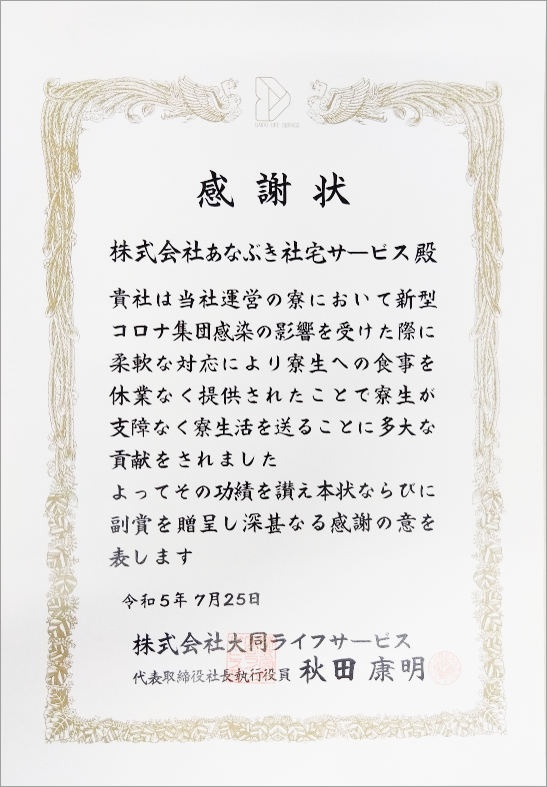 DAIDO LIFE SERVICE
感謝状
株式会社あなぶき社宅サービス殿
貴社は当社運営の寮において新型
コロナ集団感染の影響を受けた際に
柔軟な対応により寮生への食事を
休業なく提供されたことで寮生が
支障なく寮生活を送ることに多大な
貢献をされました
よってその功績を讃え本状ならびに
副賞を贈呈し深甚なる感謝の意を
表します
令和5年7月25日
株式会社大同ライフサービス
代表取締役社長執行役員 秋田康明